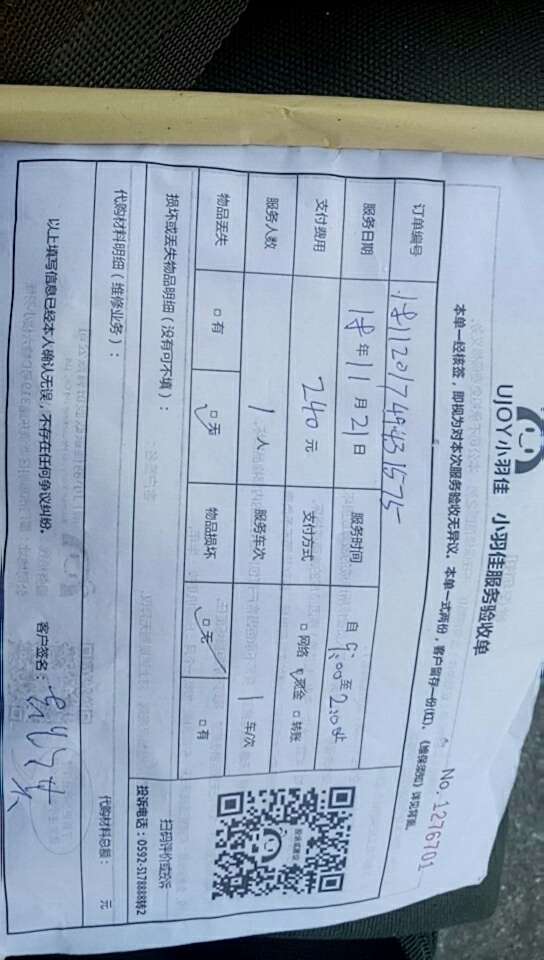 UJOY小羽佳 小羽佳服务验收单
No.1276701
本单一经核签，即视为对本次服务验收无异议。本单一式两份，客户留存一份(红)。《维保须知》详见背面。
订单编号
服务日期 18年11月21日 服务时间 自 9:00至2:00止
支付费用 240元 支付方式 □网络 ☑现金 □转账
服务人数 1人 服务车次 1车/次
物品丢失 □有 ☑无 物品损坏 ☑无 □有
损坏或丢失物品明细（没有可不填）：
扫码评价或投诉
投诉电话：0592-5178888转2
代购材料明细（维修业务）：
代购材料总额： 元
以上填写信息已经本人确认无误，不存在任何争议纠纷。 客户签名：